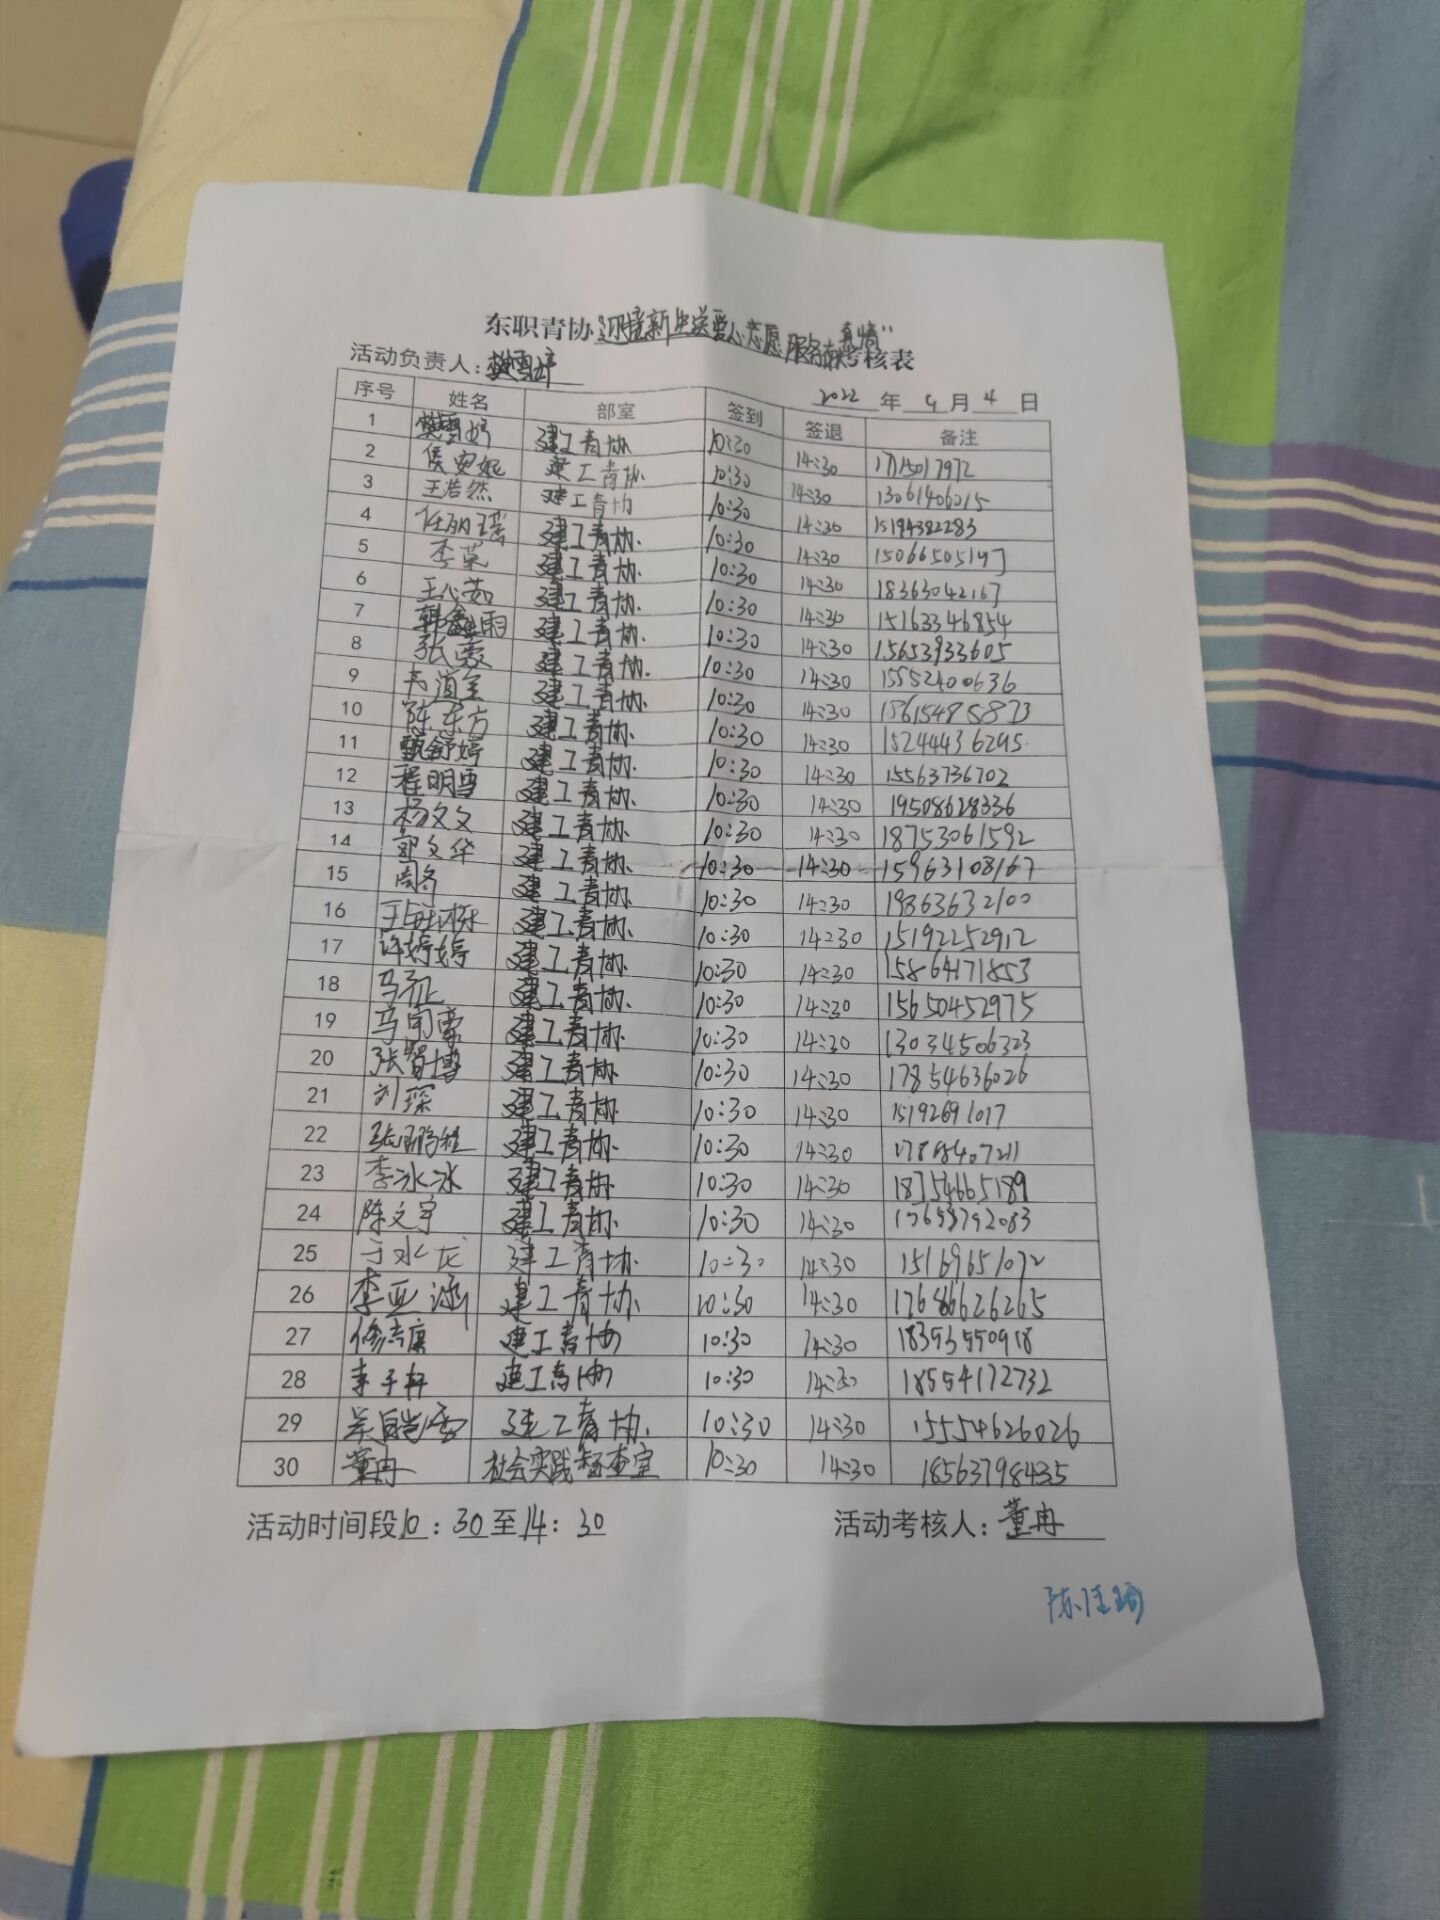 东职青协"迎接新生送爱心志愿服务献真情"考核表
活动负责人:樊雪婷
2022年9月4日
序号 姓名 部室 签到 签退 备注
1 樊雪婷 建工青协 10:30 14:30 17115017972
2 侯安妮 建工青协 10:30 14:30 13061406015
3 王浩然 建工青协 10:30 14:30 15194382283
4 任丽瑶 建工青协 10:30 14:30 15066505197
5 李英 建工青协 10:30 14:30 18363042167
6 王心茹 建工青协 10:30 14:30 15163346854
7 韩鑫雨 建工青协 10:30 14:30 15653933605
8 张蒙 建工青协 10:30 14:30 15552400636
9 10:30 建工青协 14:30
10 陈东方 建工青协 10:30 14:30 15244436295
11 甄舒婷 建工青协 10:30 14:30 15563736702
12 程明雪 建工青协 10:30 14:30 19508628336
13 杨文文 建工青协 10:30 14:30 18753061592
14 郭文华 建工青协 10:30 14:30 15963108167
15 周冬 建工青协 10:30 14:30 19863632100
16 建工青协 10:30 14:30 15192252912
17 许婷婷 建工青协 10:30 14:30 15864171853
18 马征 建工青协 10:30 14:30 15650452975
19 建工青协 10:30 14:30 13034506323
20 张智博 建工青协 10:30 14:30 17854636026
21 刘琛 建工青协 10:30 14:30 15192691017
22 张鹏程 建工青协 10:30 14:30
23 李冰冰 建工青协 10:30 14:30 18754665189
24 陈文宇 建工青协 10:30 14:30
25 于水龙 建工青协 10:30 14:30 15169651072
26 李亚涵 建工青协 10:30 14:30 17686626265
27 修志康 建工青协 10:30 14:30 18353550918
28 李子轩 建工青协 10:30 14:30 18554172732
29 建工青协 10:30 14:30 15554626026
30 董冉 社会实践督查室 10:30 14:30 18563798435
活动时间段10:30至14:30 活动考核人:董冉